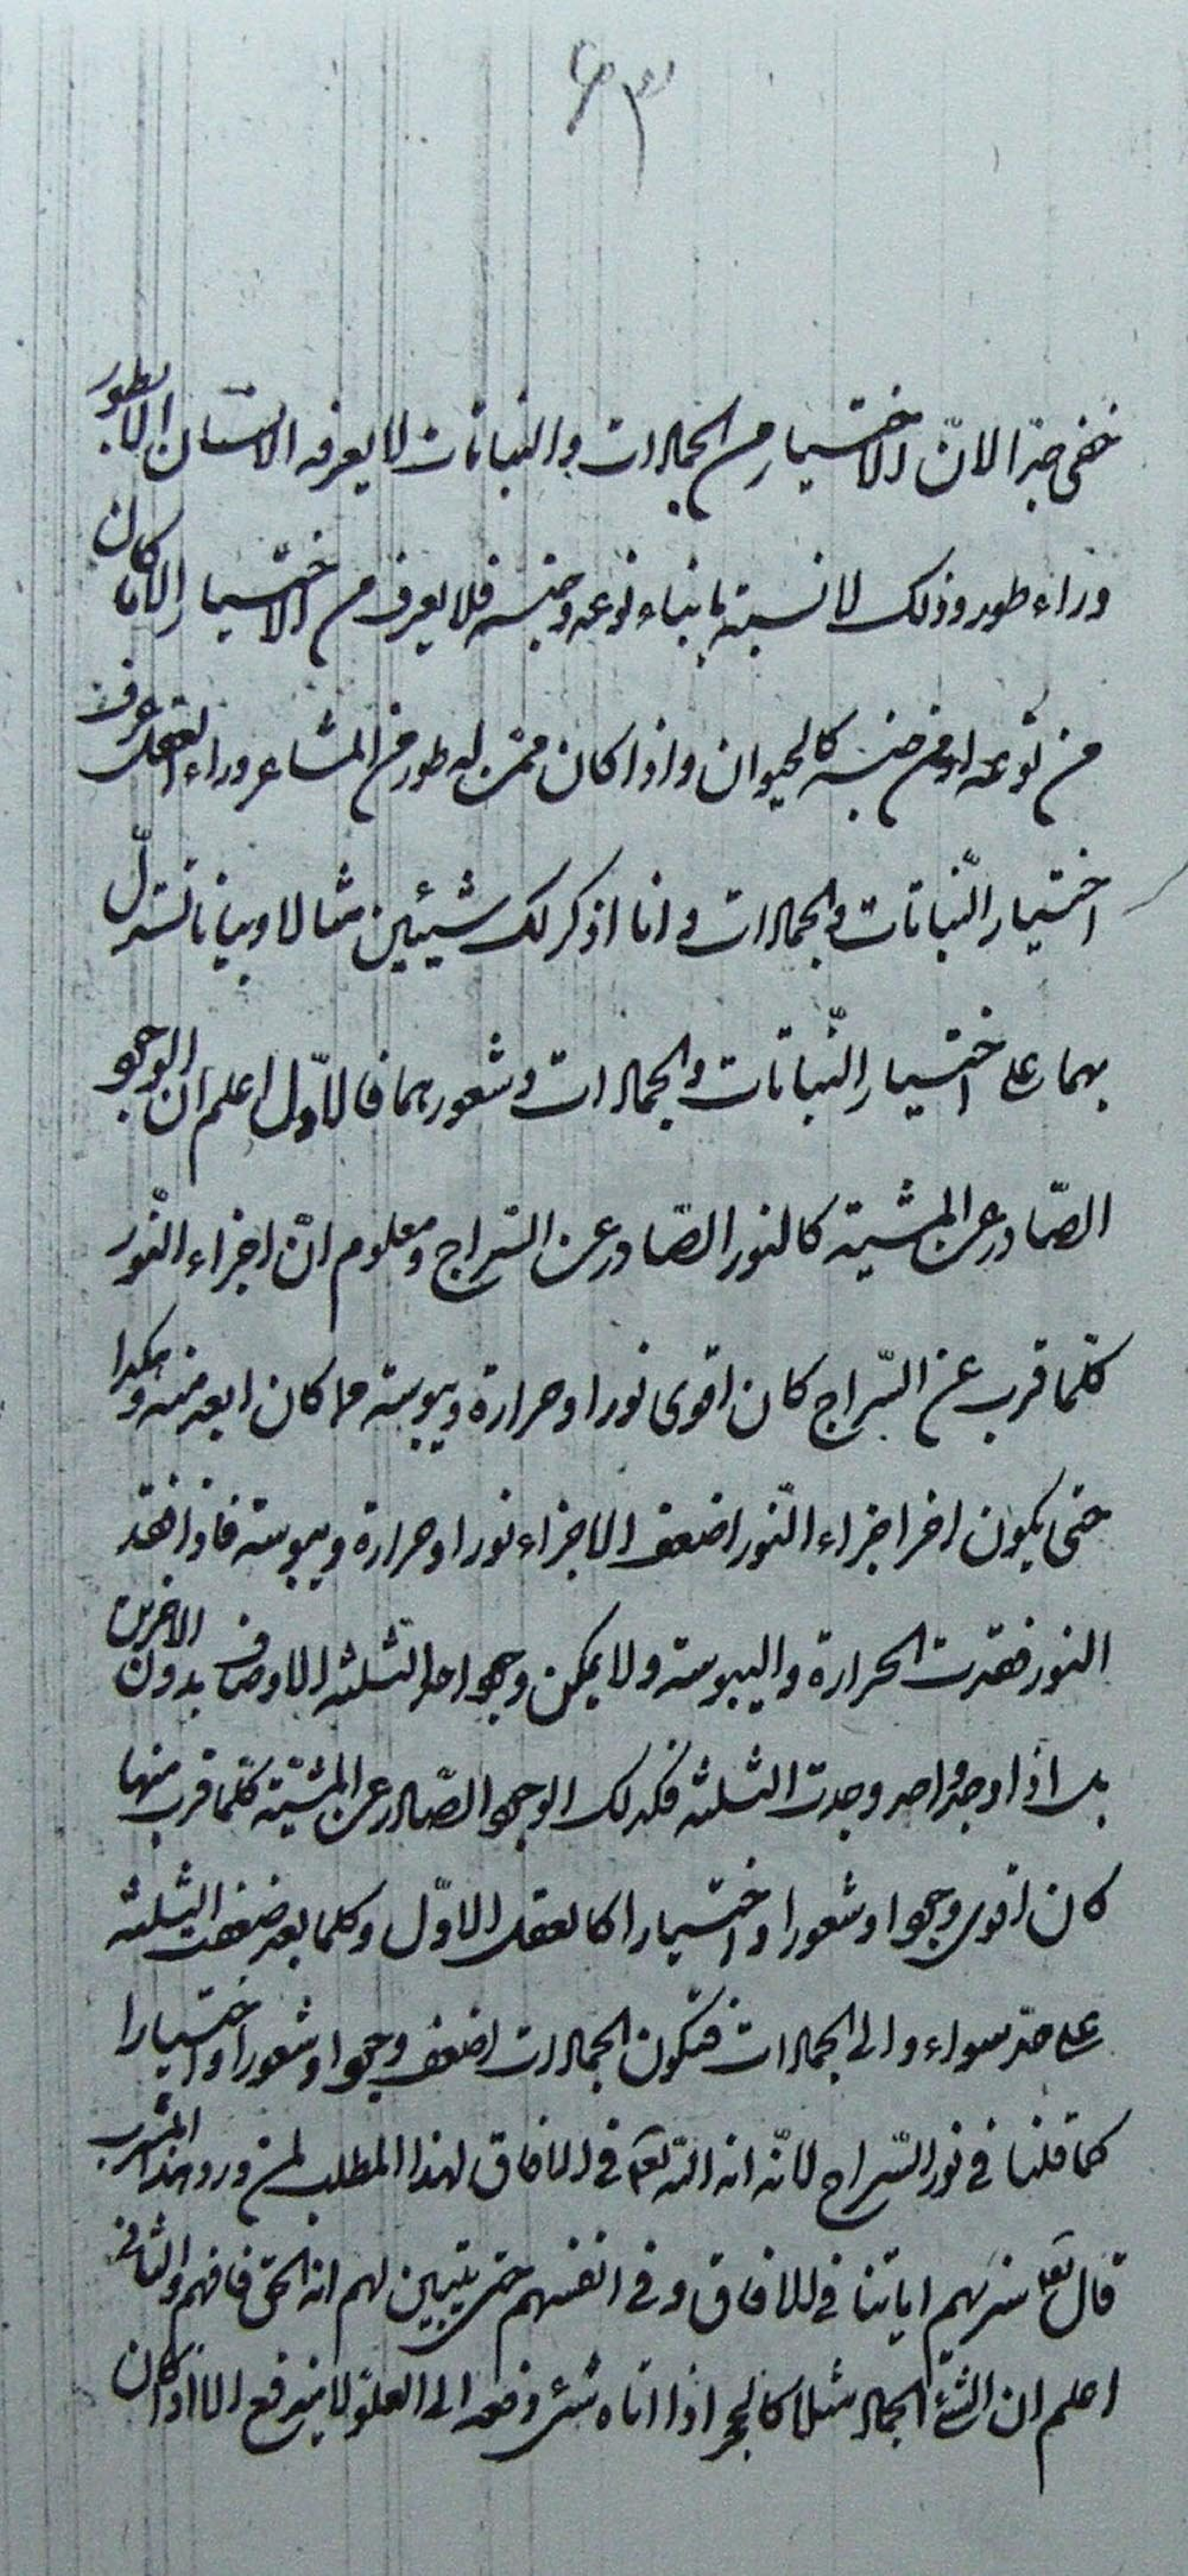 ۶۳
خفى جدّا لانّ الاختيار من الجمادات والنباتات لا يعرفه الانسان الا بطور
وراء طوره وذلك لانسته بابناء نوعه وجنسه فلا يعرف من الاختيار الا ما كان
من نوعه او من جنسه كالحيوان واذا كان ممن له طور من المشاعر وراء العقل عرف
اختيار النّباتات والجمادات وانا اذكر لك شيئين مثالا وبيانا تستدلّ
بهما على اختيار النّباتات والجمادات وشعورهما فالاوّل اعلم ان الوجود
الصّادر عن المشية كالنور الصّادر عن السّراج ومعلوم انّ اجزاء النّور
كلّما قرب عن السّراج كان اقوى نورا وحرارة ويبوسة مما كان ابعد منه وهكذا
حتى يكون اخر اجزاء النّور اضعف الاجزاء نورا وحرارة ويبوسة فاذا فقد
النور فقدت الحرارة واليبوسة ولا يمكن وجود احد الثلثة الاوصاف بدون الاخرين
بل اذا وجد واحد وجدت الثلثة فكذلك الوجود الصّادر عن المشيّة كلّما قرب منها
كان اقوى وجودا وشعورا واختيارا كالعقل الاوّل وكلما بعد ضعفت الثلثة
على حدّ سواء والى الجمادات فتكون الجمادات اضعف وجودا وشعورا واختيارا
كما قلنا في نور السّراج لانّه اية الله تعالى في الافاق لهذا المطلب لمن ورد هذا المشرب
قال تعالى سنريهم اياتنا في الافاق وفي انفسهم حتى يتبين لهم انه الحق فافهم والثاني
اعلم ان الشئ الجماد مثلا كالحجر اذا اتاه شئ ودفعه الى العلوّ لا يندفع الا اذا كان